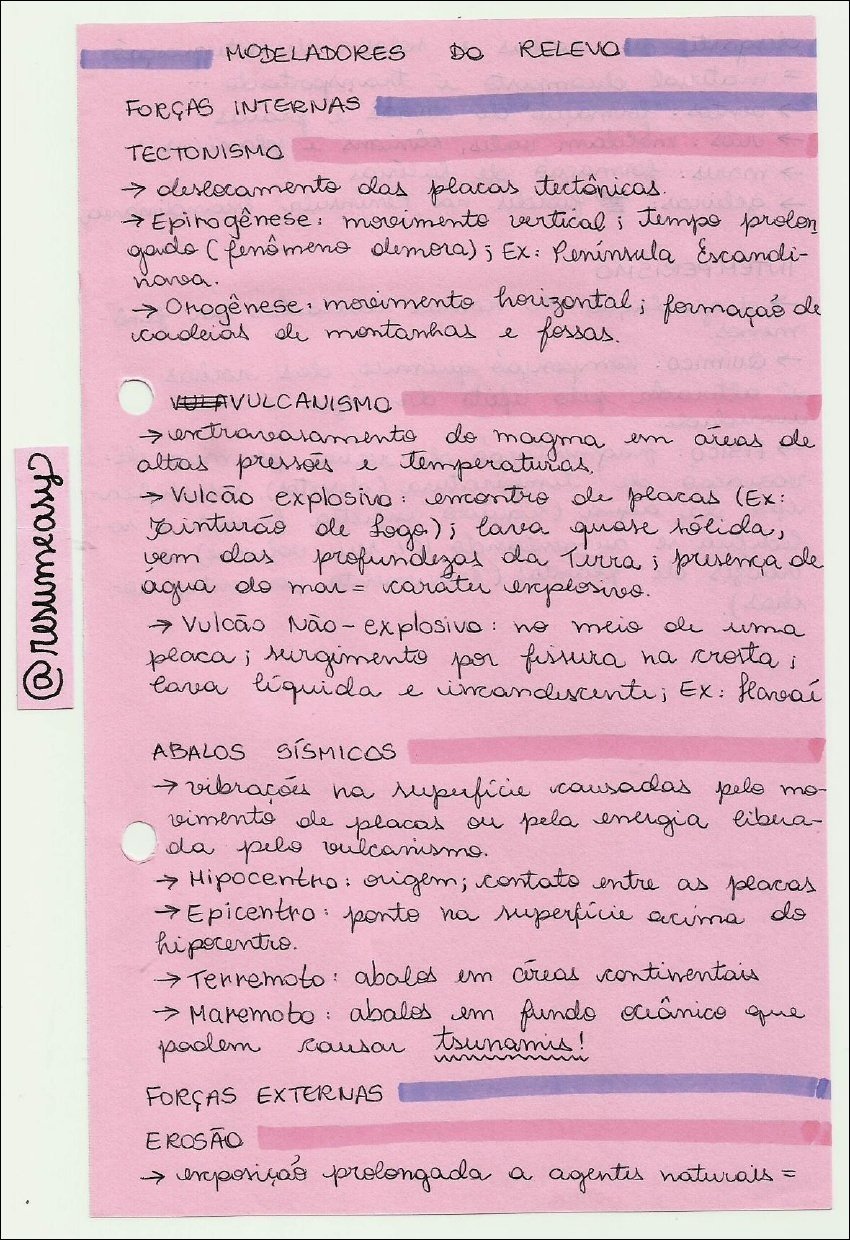 MODELADORES DO RELEVO
FORÇAS INTERNAS
TECTONISMO
→ deslocamento das placas tectônicas.
→ Epirogênese: movimento vertical; tempo prolon
gado (fenômeno demora); Ex: Península Escandi-
nava.
→ Orogênese: movimento horizontal; formação de
cadeias de montanhas e fossas.
VULCANISMO
→ extravasamento do magma em áreas de
altas pressões e temperaturas.
→ Vulcão explosivo: encontro de placas (Ex:
Cinturão de Fogo); lava quase sólida,
vem das profundezas da Terra; presença de
água do mar = caráter explosivo.
→ Vulcão Não-explosivo: no meio de uma
placa; surgimento por fissura na crosta;
lava líquida e incandescente; Ex: Havaí
@resumeasy
ABALOS SÍSMICOS
→ vibrações na superfície causadas pelo mo-
vimento de placas ou pela energia libera-
da pelo vulcanismo.
→ Hipocentro: origem; contato entre as placas
→ Epicentro: ponto na superfície acima do
hipocentro.
→ Terremoto: abalos em áreas continentais
→ Maremoto: abalos em fundo oceânico que
podem causar tsunamis!
FORÇAS EXTERNAS
EROSÃO
→ exposição prolongada a agentes naturais =